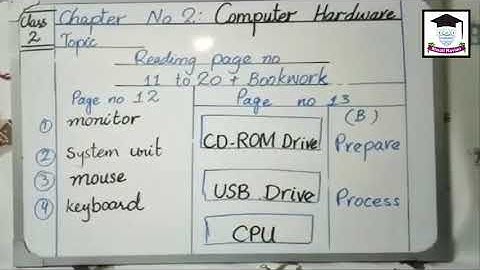 Class 2
Chapter No 2: Computer Hardware
Topic
Reading page no
11 to 20 + Bookwork
Page no 12
① monitor
② System unit
③ mouse
④ keyboard
Page no 13
CD-ROM Drive
USB Drive
CPU
(B)
Prepare
Process